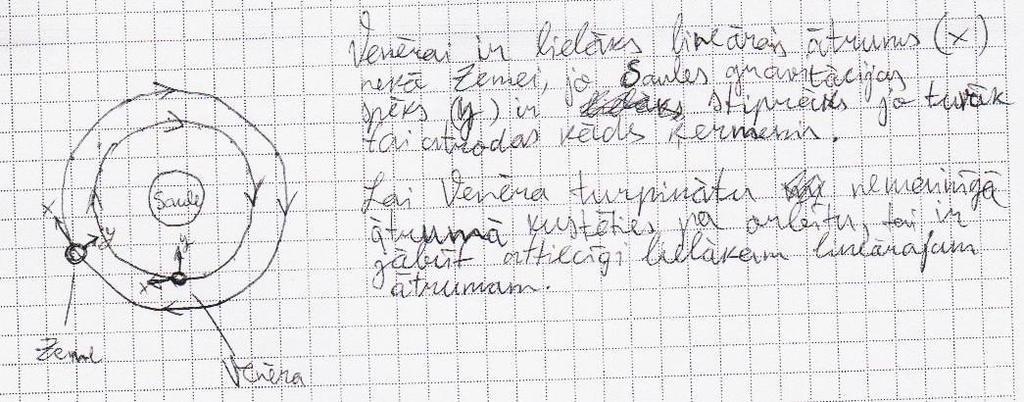 Venērai ir lielāks lineārais ātrums (x)
nekā Zemei, jo Saules gravitācijas
spēks (y) ir stiprāks jo tuvāk
tai atrodas kāds ķermenis.
Lai Venēra turpinātu nemainīgā
ātrumā kustēties pa orbītu, tai ir
jābūt attiecīgi lielākam lineārajam
ātrumam.
Saule
x
y
x
y
Zeme
Venēra